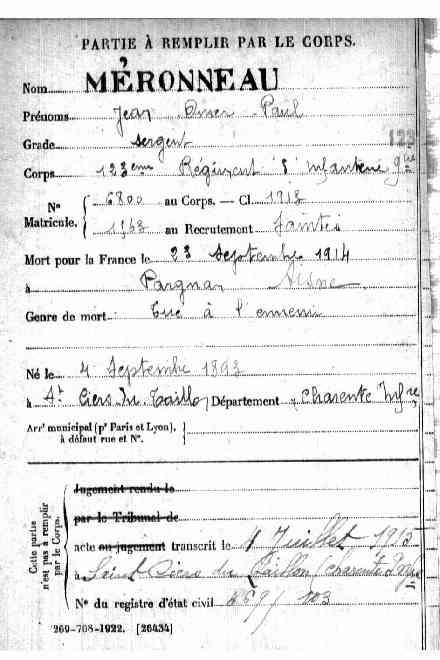 PARTIE À REMPLIR PAR LE CORPS.
Nom MÉRONNEAU
Prénoms Jean Omer Paul
Grade sergent
123
Corps 123eme Régiment d'Infanterie
Nº Matricule. 6800 au Corps. — Cl. 1913
1563 au Recrutement Saintes
Mort pour la France le 23 septembre 1914
à Pargnan Aisne
Genre de mort: Tué à l'ennemi
Né le 4 Septembre 1893
à St Ciers du Taillon Département Charente Infre
Arrt municipal (pr Paris et Lyon), à défaut rue et Nº.
Cette partie n'est pas à remplir par le Corps.
Jugement rendu le
par le Tribunal de
acte ou jugement transcrit le 4 Juillet 1915
à Saint Ciers du Taillon (Charente Infre
Nº du registre d'état civil 869/103
269-708-1922. [26434]